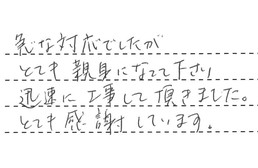 急な対応でしたが
とても親身になって下さい
迅速に工事して頂きました。
とても感謝しています。